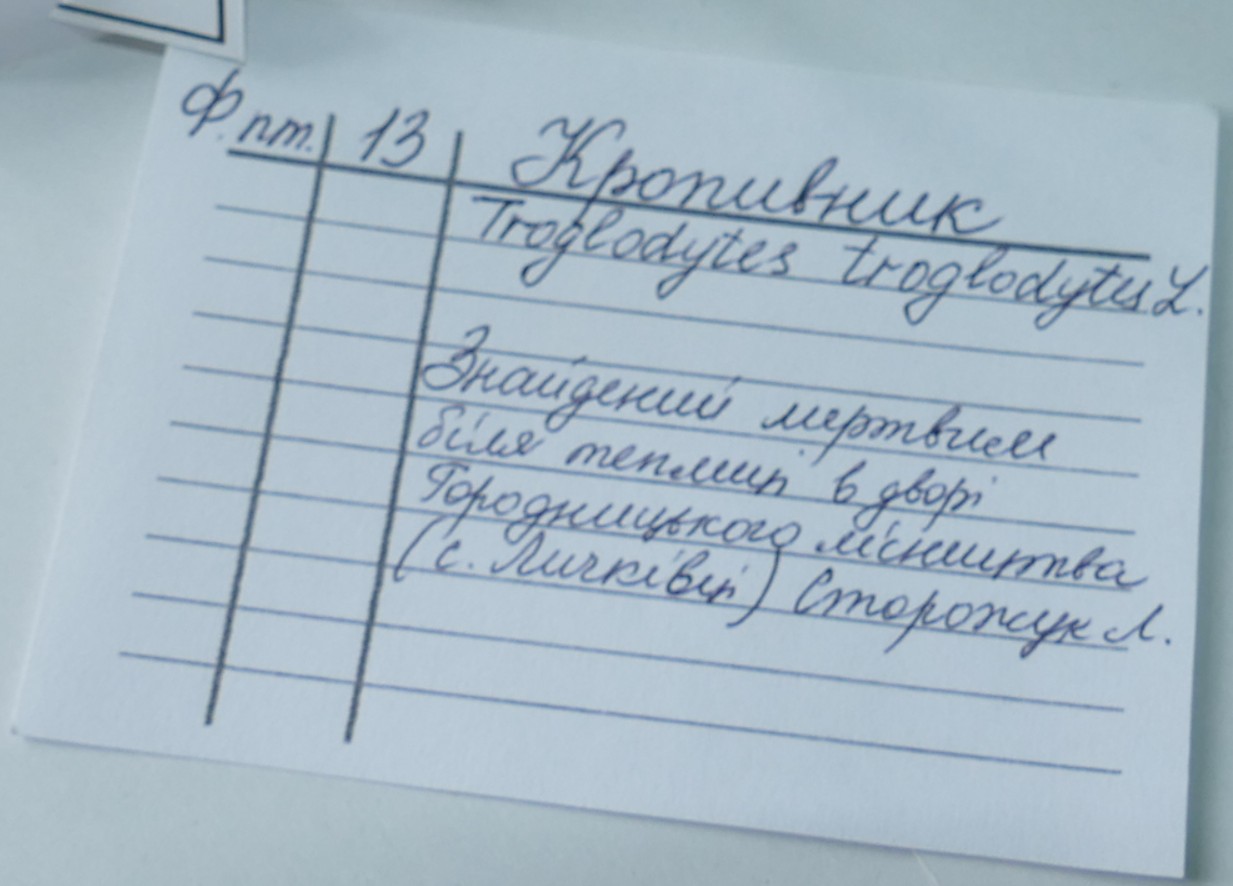 Ф. пт. 13 Кропивник
Troglodytes troglodytes L.
Знайдений мертвим
біля теплиці в дворі
Городницького лісництва
(с. Личківці) Сторожук Л.